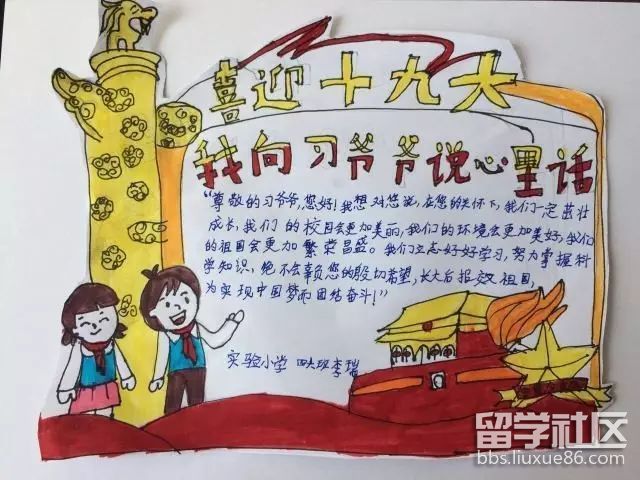 喜迎十九大
我向习爷爷说心里话
“尊敬的习爷爷,您好!我想对您说,在您的关怀下,我们一定茁壮
成长,我们的校园会更加美丽,我们的环境会更加美好,我们
的祖国会更加繁荣昌盛。我们立志好好学习,努力掌握科
学知识,绝不会辜负您的殷切希望,长大后报效祖国,
为实现中国梦而团结奋斗!”
实验小学 四六班李瑞
留学社区
bbs.liuxue86.com